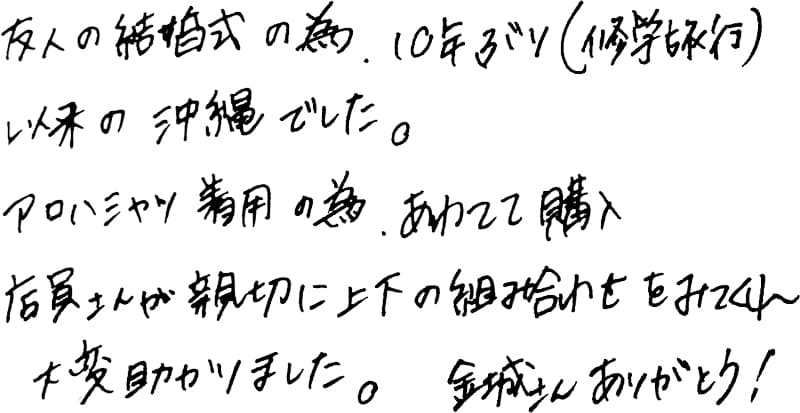 友人の結婚式の為、10年ぶり(修学旅行)
以来の沖縄でした。
アロハシャツ着用の為、あわてて購入
店員さんが親切に上下の組み合わせをみてくれ
大変助かりました。 金城さんありがとう!